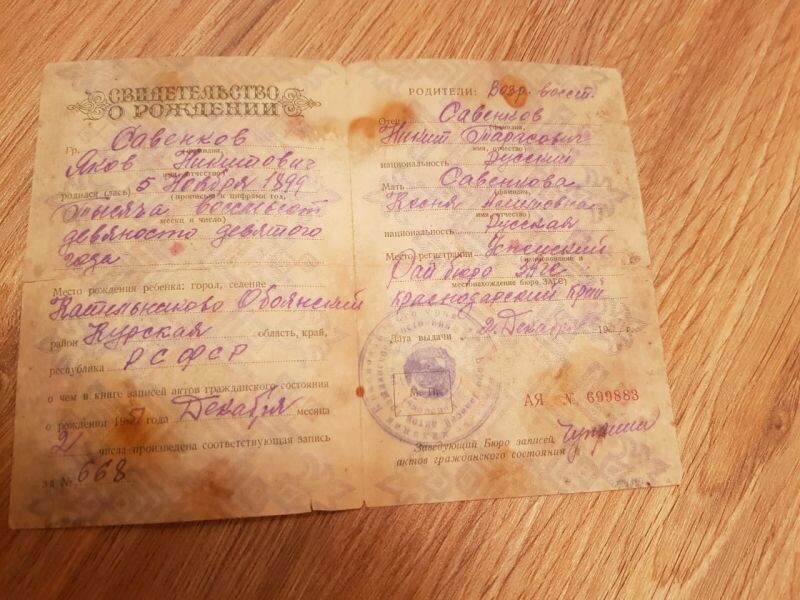 СВИДЕТЕЛЬСТВО
О РОЖДЕНИИ
Гр. Савенков
(фамилия,
Яков Никитович
имя, отчество)
родился (лась) 5 Ноября 1899
(прописью и цифрами год,
тысяча восемьсот
месяц и число)
девяносто девятого
года
Место рождения ребенка: город, селение
Обоянский
район Курская область, край,
республика РСФСР
о чем в книге записей актов гражданского состояния
о рождении 19 года Декабря месяца
2 числа произведена соответствующая запись
за № 668
РОДИТЕЛИ: Возр. восст.
Отец Савенков
(фамилия,
Никит Тарасович
имя, отчество)
национальность Русский
Мать Савенкова
(фамилия,
Ксения
имя, отчество)
национальность Русская
Место регистрации
(наименование и
Рай бюро ЗАГС
местонахождение бюро ЗАГС)
Краснодарский край
Дата выдачи 2 Декабря 19 г.
М. П.
АЯ № 699883
Заведующий Бюро записей
актов гражданского состояния